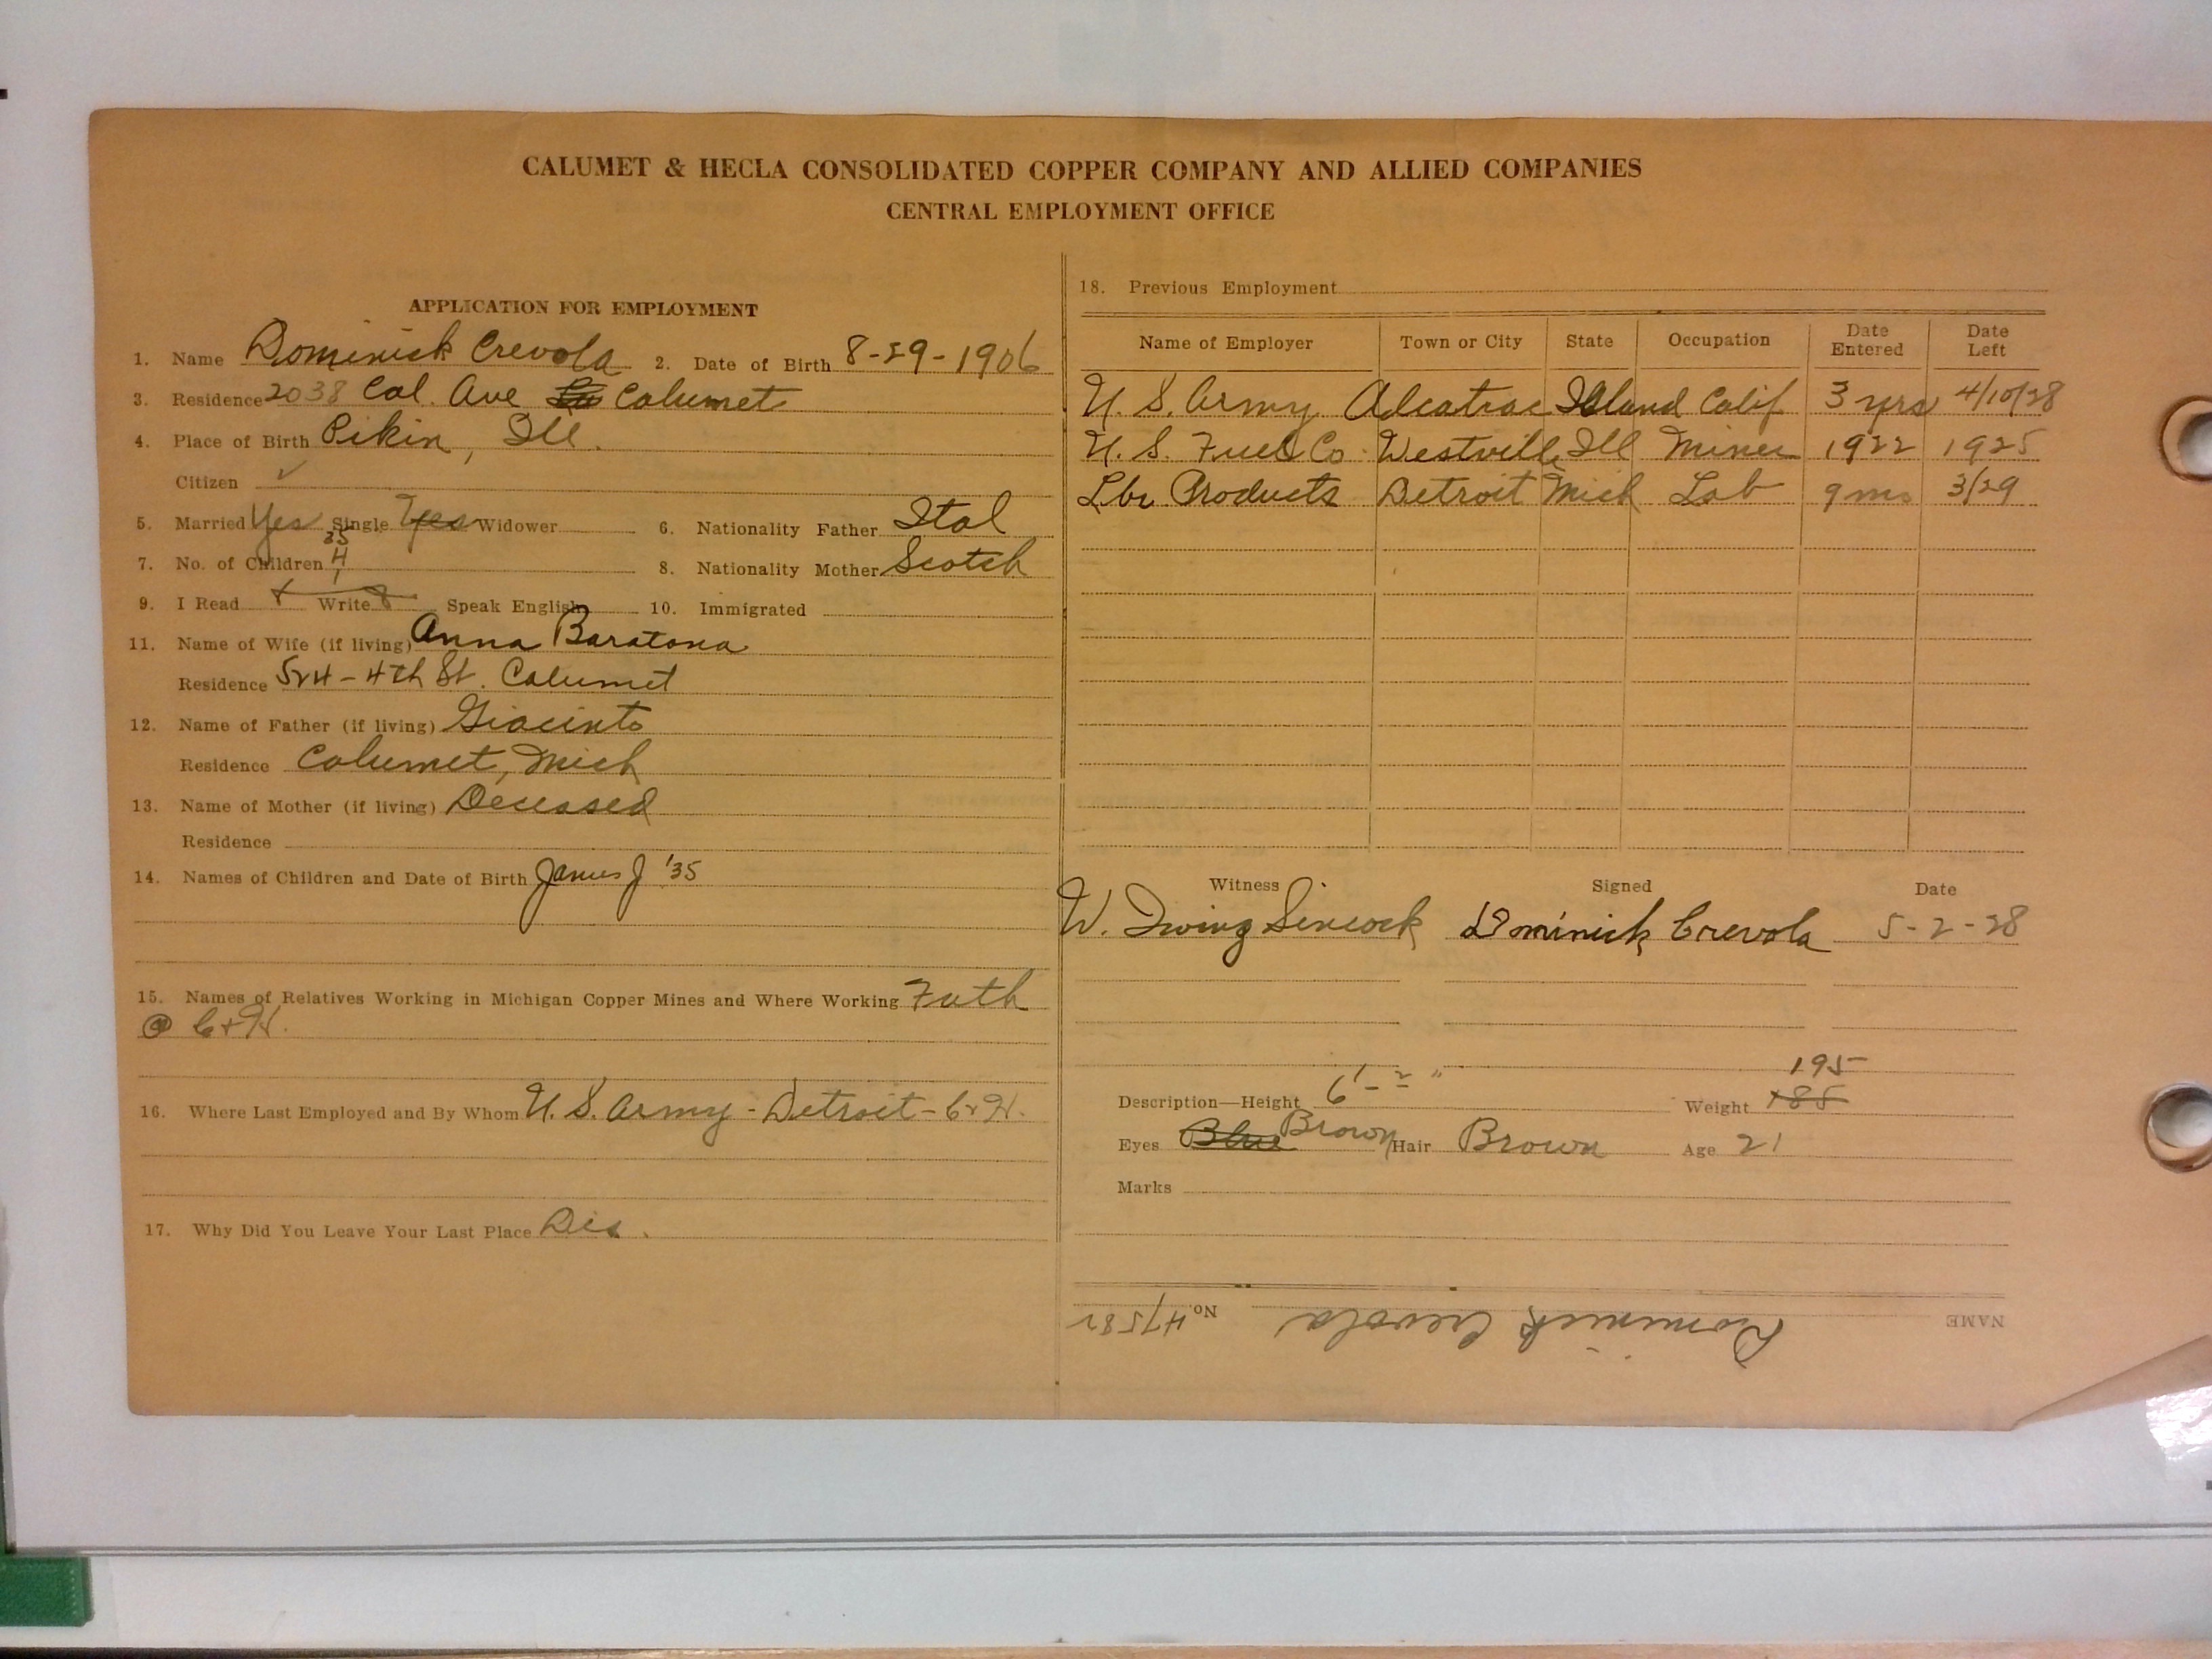 CALUMET & HECLA CONSOLIDATED COPPER COMPANY AND ALLIED COMPANIES
CENTRAL EMPLOYMENT OFFICE
APPLICATION FOR EMPLOYMENT
1. Name Dominick Crevola 2. Date of Birth 8-29-1906
3. Residence 2038 Cal. Ave Calumet
4. Place of Birth Pikin, Ill.
Citizen ✓
5. Married Yes Single Yes Widower 6. Nationality Father Ital
35
7. No. of Children 4 8. Nationality Mother Scotch
1
9. I Read Write Speak English 10. Immigrated
11. Name of Wife (if living) Anna Baratona
Residence 524-4th St. Calumet
12. Name of Father (if living) Giacinto
Residence Calumet, Mich
13. Name of Mother (if living) Deceased
Residence
14. Names of Children and Date of Birth James J '35
15. Names of Relatives Working in Michigan Copper Mines and Where Working Fath
@ C+H.
16. Where Last Employed and By Whom U.S. Army - Detroit - C+H.
17. Why Did You Leave Your Last Place Dis.
18. Previous Employment
Name of Employer Town or City State Occupation Date Entered Date Left
U.S. Army Alcatrac Island Calif 3 yrs 4/10/28
U.S. Fuel Co. Westville Ill Miner 1922 1925
Lbr Products Detroit Mich Lab 9 mo 3/29
Witness Signed Date
W. Irwing Sincock Dominick Crevola 5-2-28
195
Description—Height 6'-2" Weight 185
Eyes Blue Brown Hair Brown Age 21
Marks
NAME Dominick Crevola No. 47582